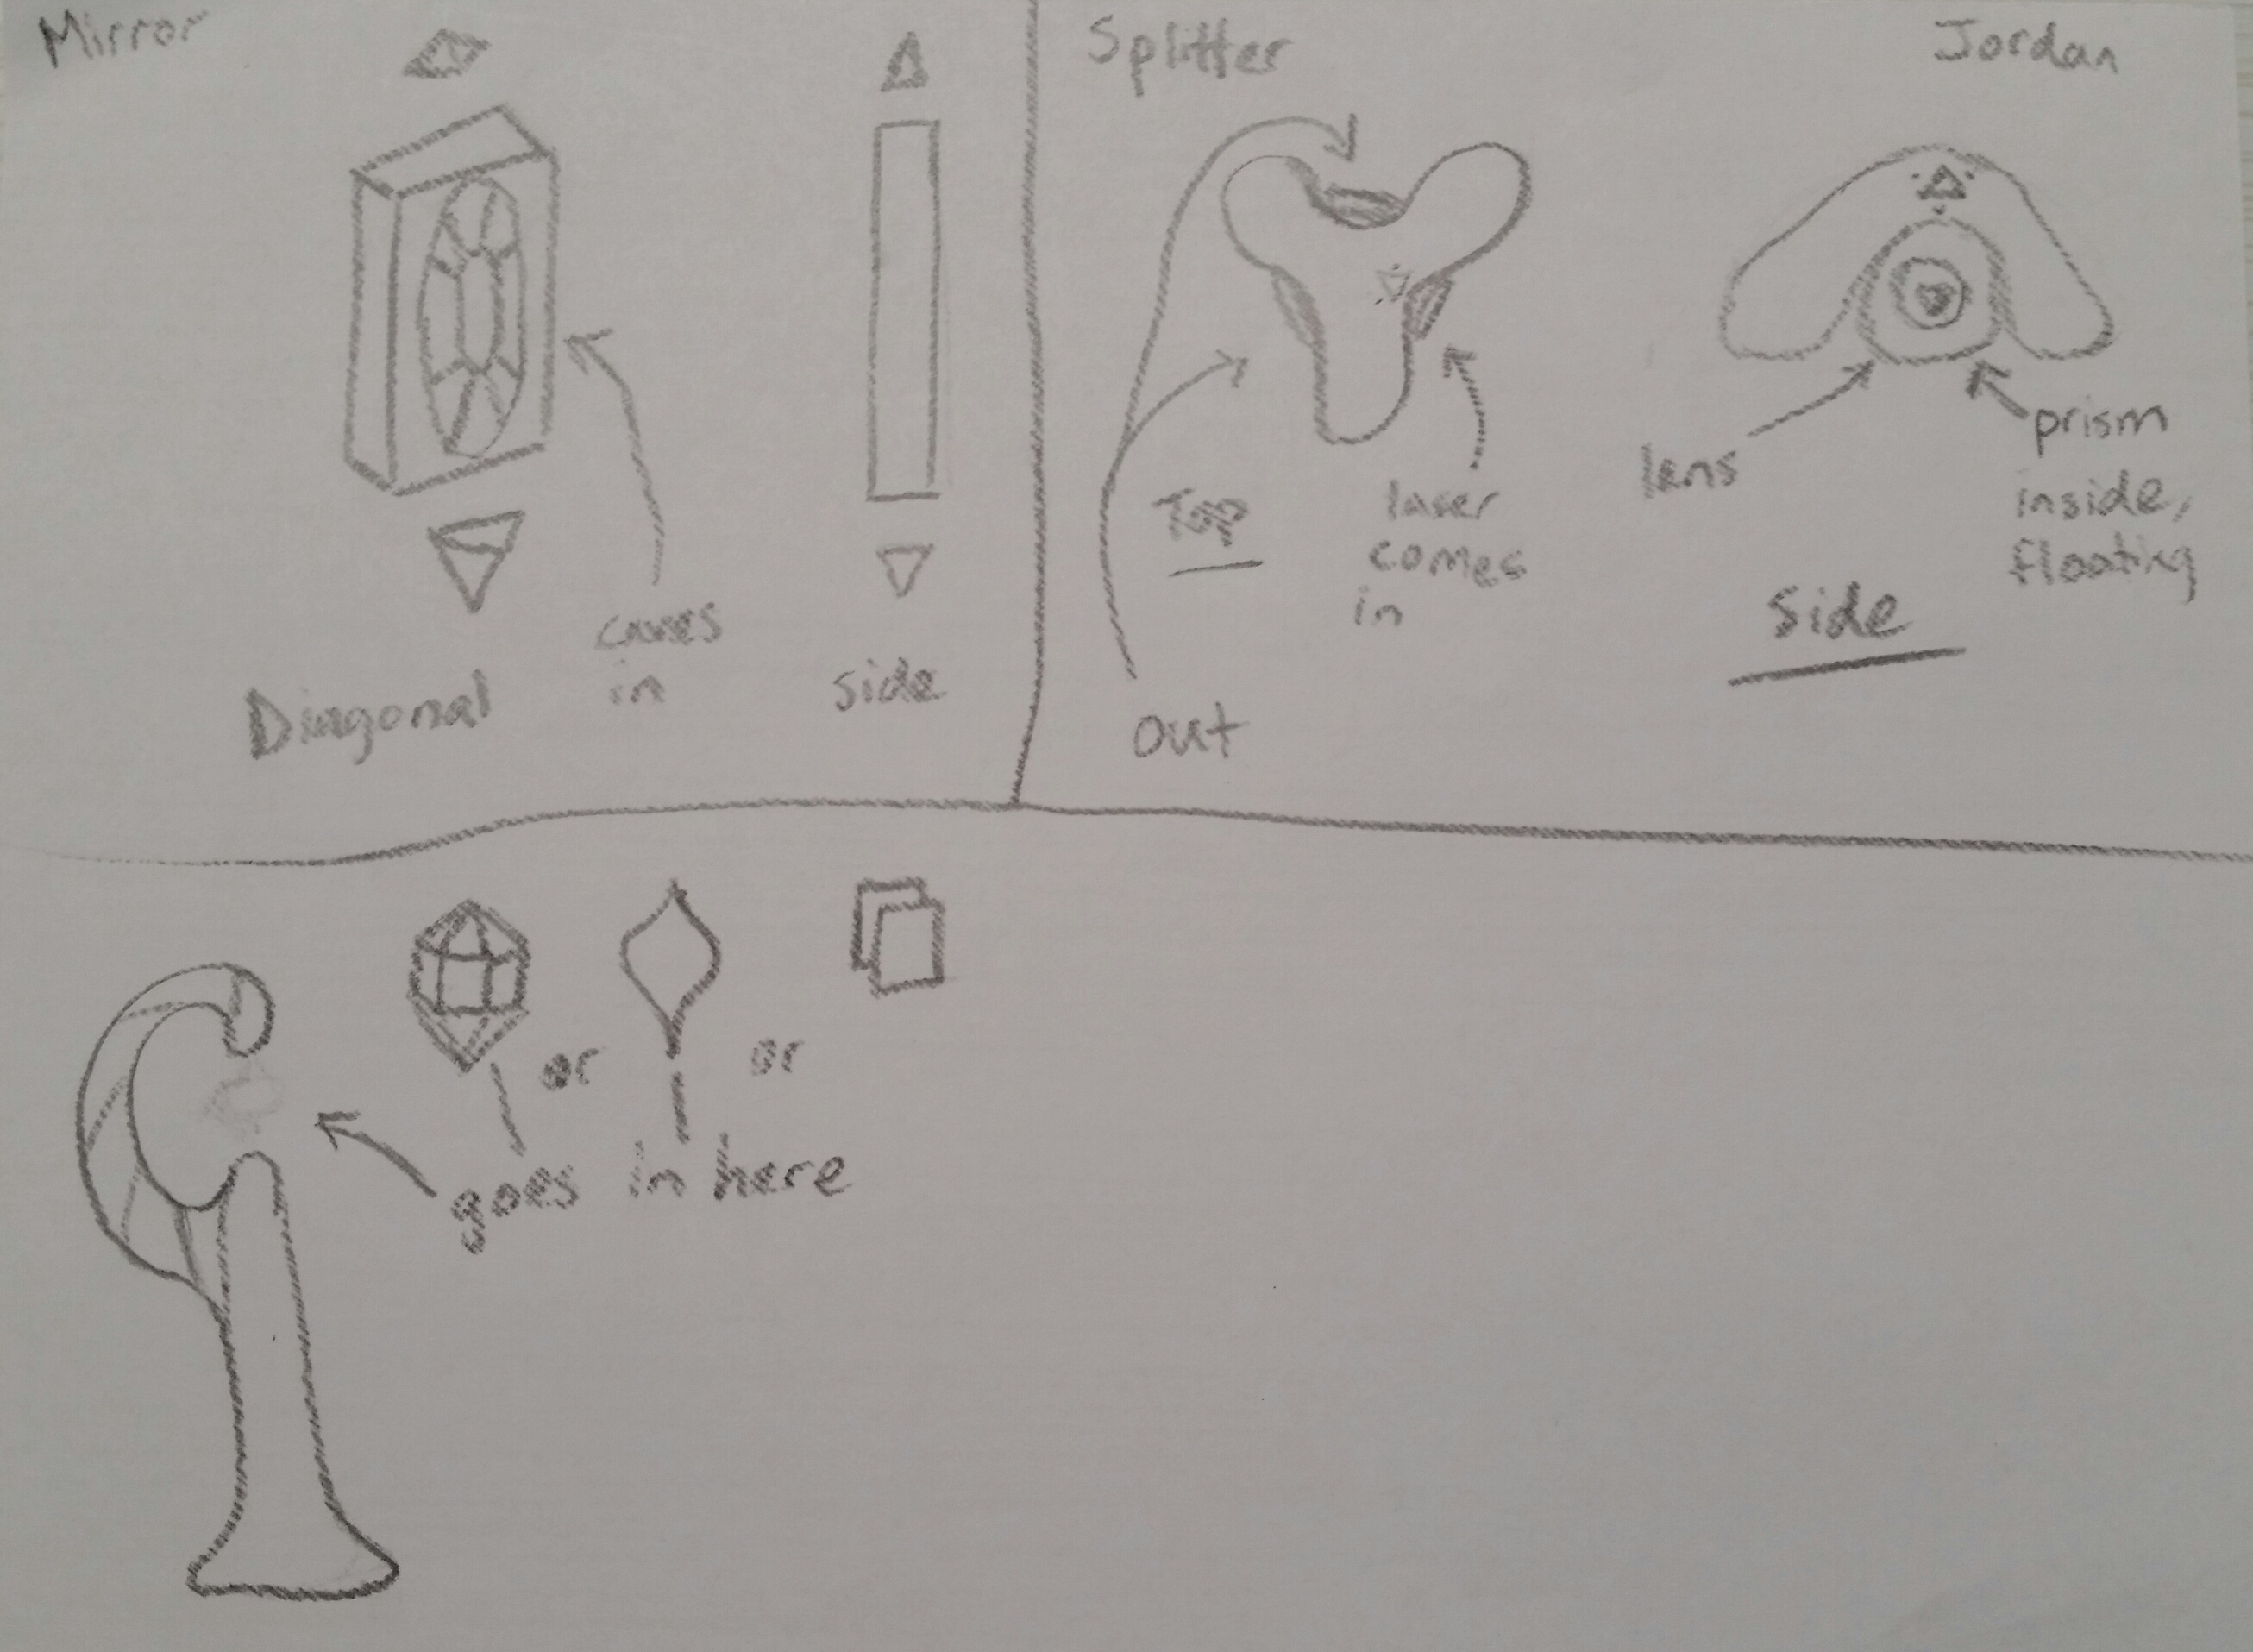 Mirror
Diagonal
caves
in
side
Splitter
Jordan
Top
laser
comes
in
out
lens
prism
inside,
floating
Side
or
or
goes in here